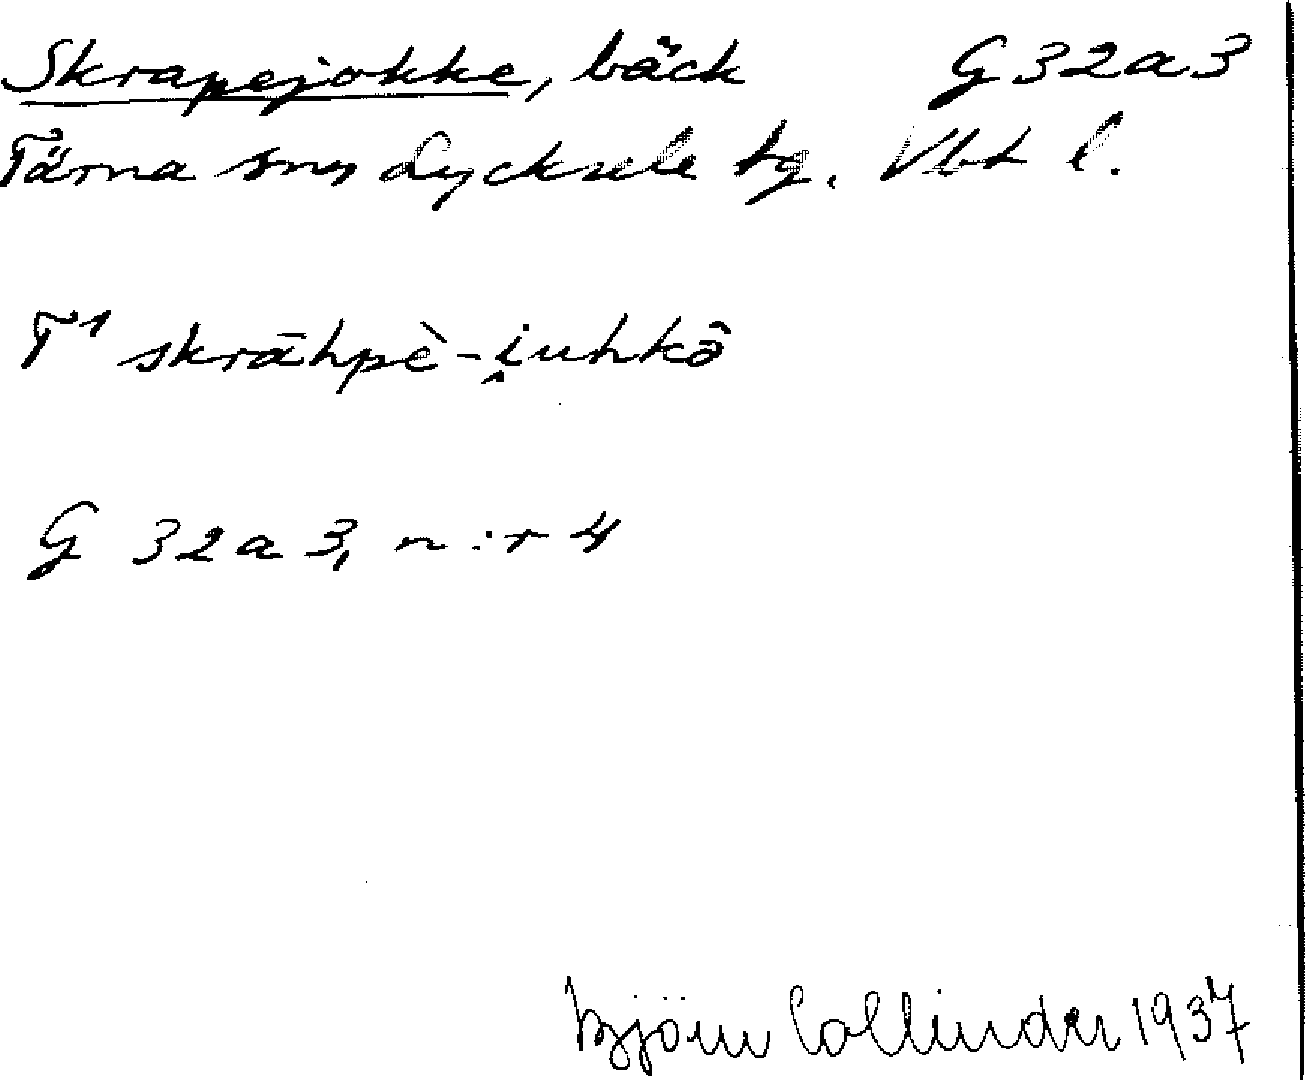 Skrapejokke, bäck G32a3
Tärna sn, Lycksele tg. Vbt l.
T¹ skrāhpè-i̭uhkə̂
G 32a3, n:r 4
Björn Collinder 1937